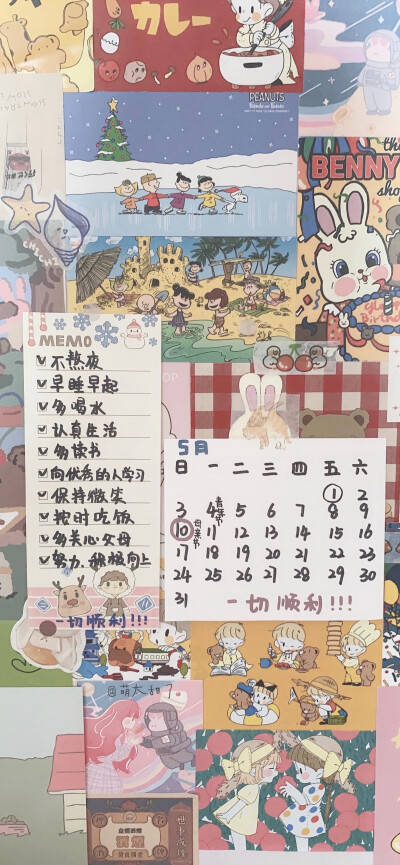 カレー
PEANUTS
the
BENNY
MEMO
不熬夜
早睡早起
多喝水
认真生活
多读书
向优秀的人学习
保持微笑
按时吃饭
多关心父母
努力、积极向上
一切顺利!!!
5月
日 一 二 三 四 五 六
1 2
3 4 青年节 5 6 7 8 9
10 母亲节 11 12 13 14 15 16
17 18 19 20 21 22 23
24 25 26 27 28 29 30
31
一切顺利!!!
@萌太甜